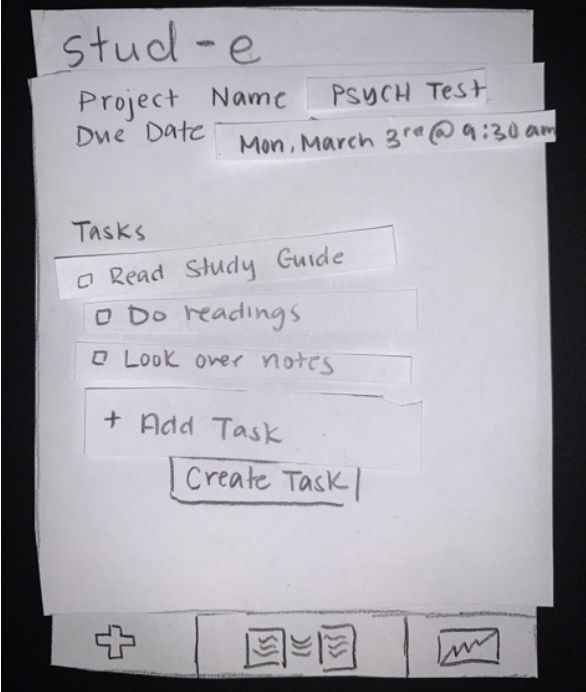 stud-e
Project Name PSYCH Test
Due Date Mon, March 3rd @ 9:30 am
Tasks
Read Study Guide
Do readings
Look over notes
+ Add Task
Create Task